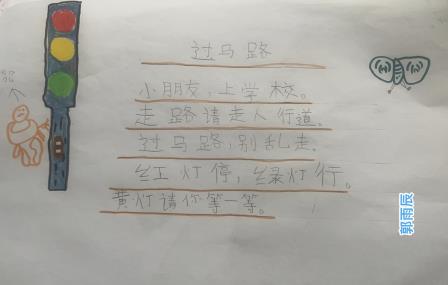 过马路
小朋友,上学校。
走路请走人行道。
过马路,别乱走。
红灯停,绿灯行。
黄灯请你等一等。
郭雨辰